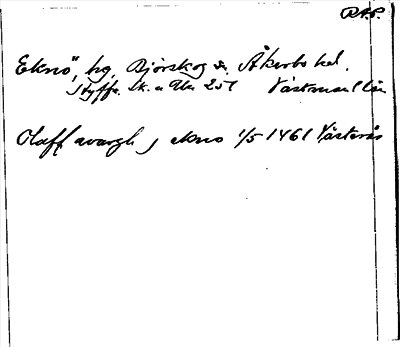 RAP.
Eknö, hg, Björskog sn. Åkerbo hd.
Styffe. Sk. u Un 251 Västmanl län
Olaff awargh j ekno 1/5 1461 Västerås